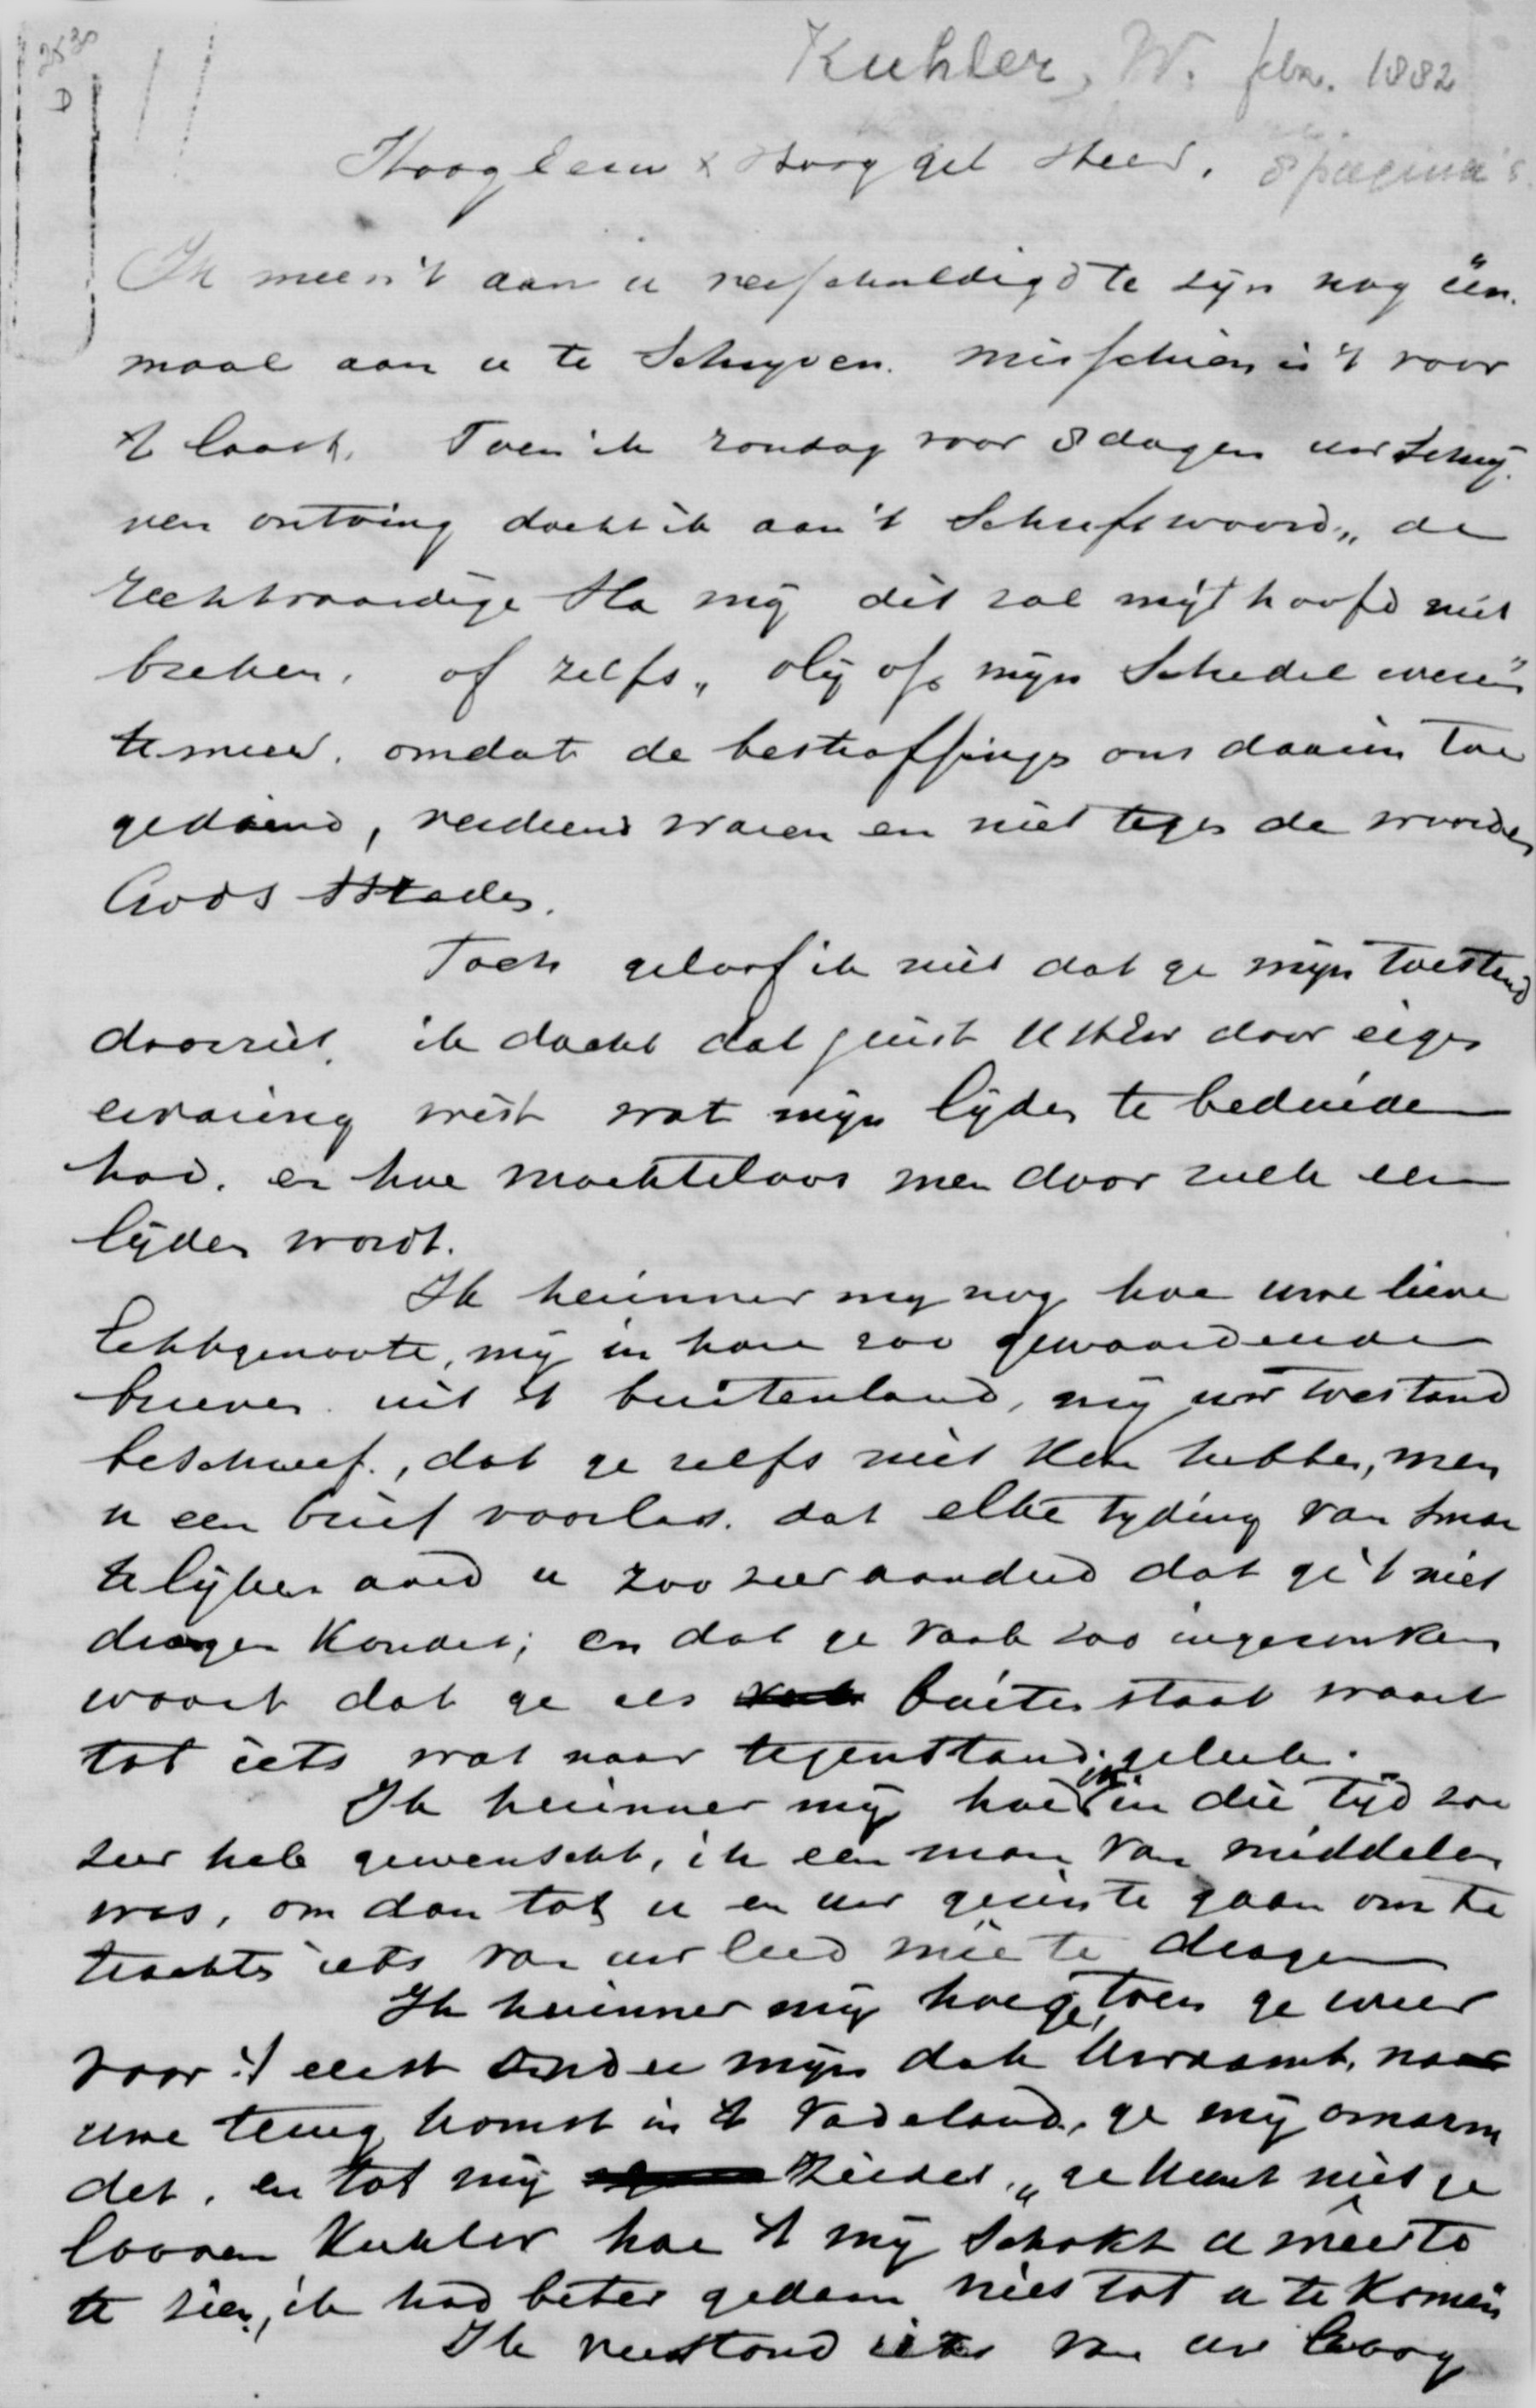 Kuhler, W. febr. 1882
D
Hoog Eerw & Hoog gel Heer. 8 pagina's
Ik meen 't aan u verschuldigd te zijn nog één
maal aan u te schrijven. misschien is 't voor
't laatst. Toen ik zondag voor 8 dagen uw schrij
ven ontving dacht ik aan 't Schriftwoord „de
rechtvaardige sla mij dit zal mijn hoofd niet
breken. of zelfs „ olij op mijn Schedel wezen"
te meer. omdat de bestraffings ons daarin toe
gediend, verdiend waren en niet tegen de woorden
Gods streden.
Toch geloof ik niet dat ge mijn toestand
doorziet. ik dacht dat juist UHEw door eigen
ervaring wist wat mijn lijden te beduiden
had. en hoe machteloos men door zulk een
lijden wordt.
Ik herinner mij nog hoe uwe lieve
Echtgenoote, mij in hare zoo gewaardeerde
brieven uit 't buitenland, mij uw toestand
beschreef, dat ge zelfs niet kon hebben, men
u een brief voorlas. dat elke tijding van smar
telijken aard u zoo zeer aandeed dat ge 't niet
dragen kondet; en dat ge vaak zoo ingezonken
waart dat ge als buiten staat waart
tot iets wat naar tegenstand geleek.
Ik herinner mij hoe ik in die tijd zoo
zeer heb gewenscht, ik een man van middelen
was, om dan tot u en uw gezin te gaan om te
trachten iets van uw leed meê te dragen
Ik herinner mij hoe ge, toen ge weer
voor 't eerst onder mijn dak kwaamt, naar
uwe terug komst in 't Vaderland, ge mij omarm
det, en tot mij zeidet, „ge kunt niet ge
looven Kuhler hoe 't mij schokt u weer te
te zien, ik had beter gedaan niet tot u te komen"
Ik verstond iets van uw